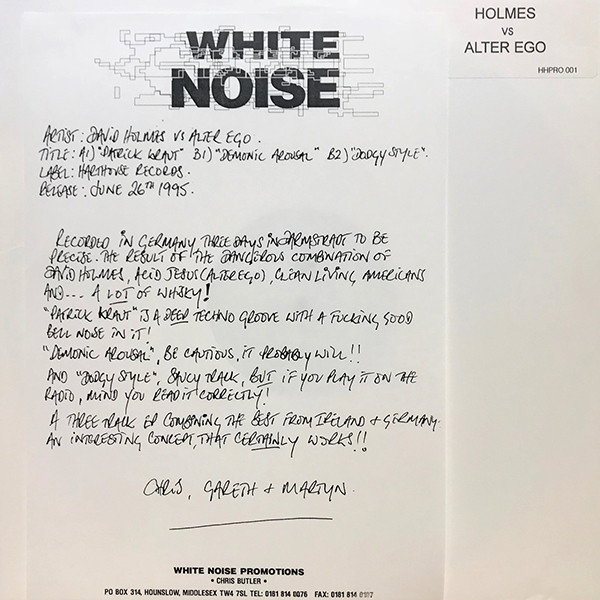 WHITE
NOISE
HOLMES
VS
ALTER EGO
HHPRO 001
ARTIST: DAVID HOLMES VS ALTER EGO.
TITLE: A1) "PATRICK KRAUT" B1) "DEMONIC AROUSAL" B2) "DODGY STYLE".
LABEL: HARTHOUSE RECORDS.
RELEASE: JUNE 26TH 1995.
RECORDED IN GERMANY, THREE DAYS IN DARMSTRADT TO BE
PRECISE. THE RESULT OF THE DANGEROUS COMBINATION OF
DAVID HOLMES, ACID JESUS (ALTER EGO), CLEAN LIVING AMERICANS
AND--- A LOT OF WHISKY!
"PATRICK KRAUT" IS A DEEP TECHNO GROOVE WITH A FUCKING GOOD
BELL NOISE IN IT!
"DEMONIC AROUSAL", BE CAUTIOUS, IT PROBABLY WILL!!
AND "DODGY STYLE", SAUCY TRACK, BUT IF YOU PLAY IT ON THE
RADIO, MIND YOU READ IT CORRECTLY!
A THREE TRACK EP COMBINING THE BEST FROM IRELAND + GERMANY.
AN INTERESTING CONCEPT, THAT CERTAINLY WORKS!!
CHRIS, GARETH + MARTYN.
WHITE NOISE PROMOTIONS
• CHRIS BUTLER •
PO BOX 314, HOUNSLOW, MIDDLESEX TW4 7SL TEL: 0181 814 0076 FAX: 0181 814